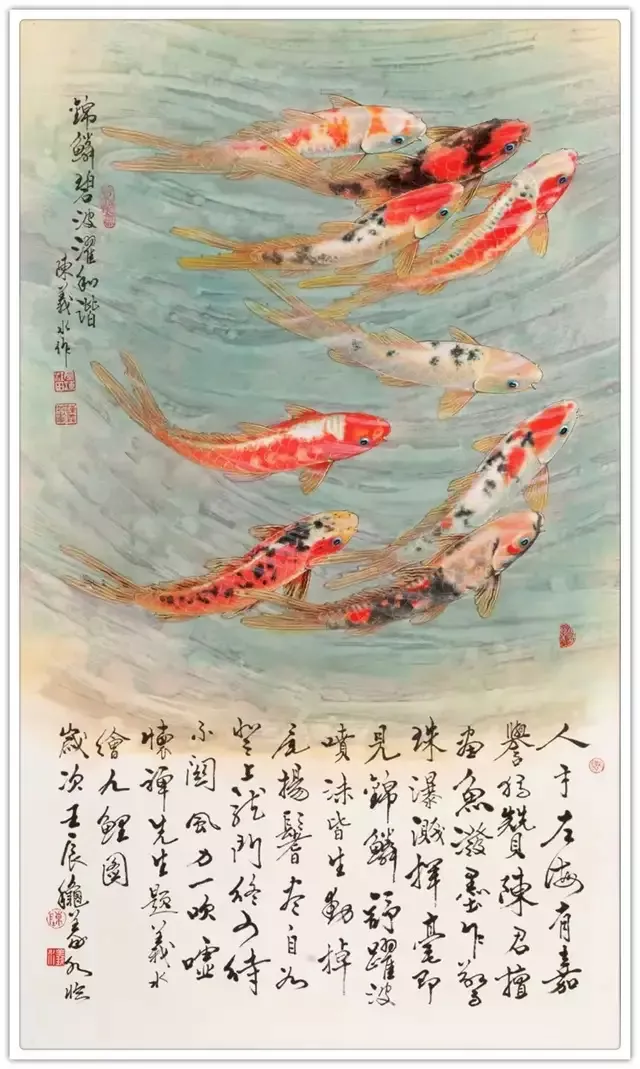 錦鱗碧波濯和諧
陳義水作
人于左海有嘉
譽獨贊陳君擅
畫魚潑墨乍驚
珠瀑濺揮毫即
見錦鱗躍波
噴沫皆生動掉
尾揚鬐差自如
登上龍門終有待
不關風力一吹噓
懷禪先生題義水
繪九鯉圖
歲次壬辰義水